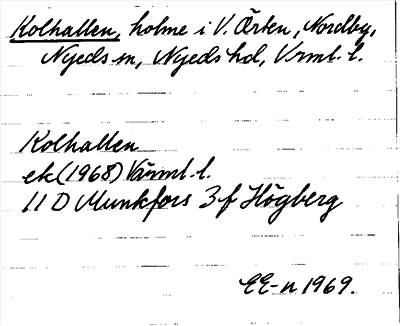 Kolhallen, holme i V. Örten, Nordby,
Nyeds sn, Nyeds hd, Vrml. l.
Kolhallen
ek (1968) Värml. l.
11 D Munkfors 3 f Högberg
EE-n 1969.